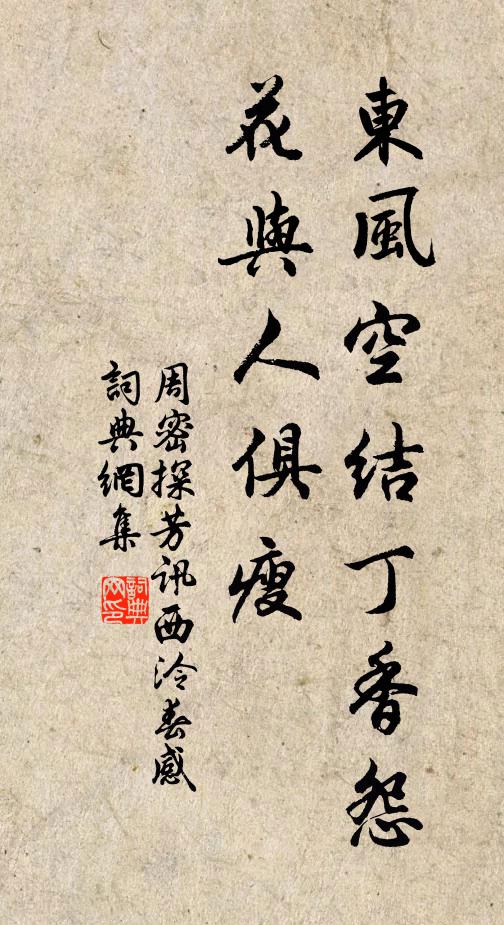 東風空結丁香怨
花與人俱瘦
周密探芳訊西泠春感
詞典網集
詞典
网印